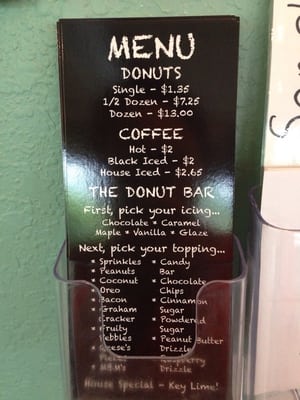 MENU
DONUTS
Single - $1.35
1/2 Dozen - $7.25
Dozen - $13.00
COFFEE
Hot - $2
Black Iced - $2
House Iced - $2.65
THE DONUT BAR
First, pick your icing...
Chocolate * Caramel
Maple * Vanilla * Glaze
Next, pick your topping...
* Sprinkles
* Peanuts
* Coconut
* Oreo
* Bacon
* Graham
Cracker
* Fruity
Pebbles
Reese's
Pieces
* M&M's
* Candy
Bar
* Chocolate
Chips
* Cinnamon
Sugar
* Powdered
Sugar
* Peanut Butter
Drizzle
Raspberry
Drizzle
House Special - Key Lime!